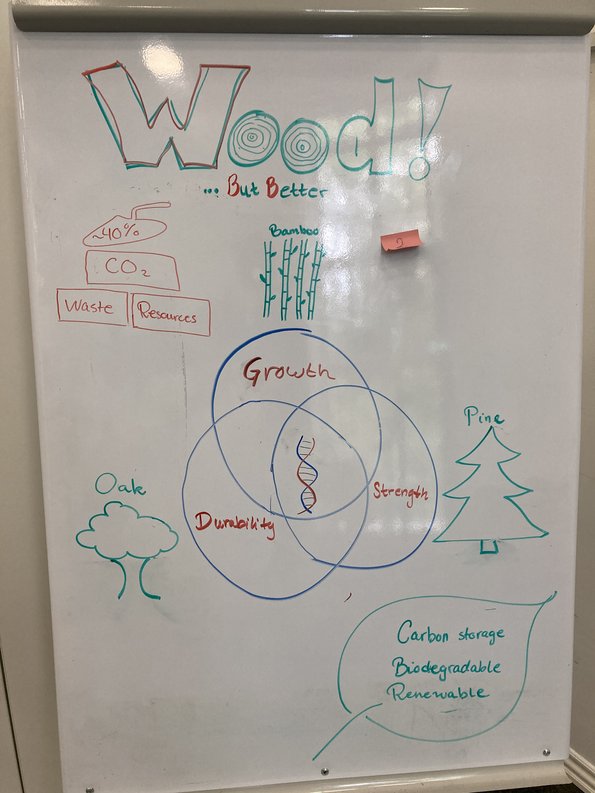 Wood!
... But Better
~40%
CO₂
Waste
Resources
Bamboo
2
Growth
Durability
Strength
Oak
Pine
Carbon storage
Biodegradable
Renewable